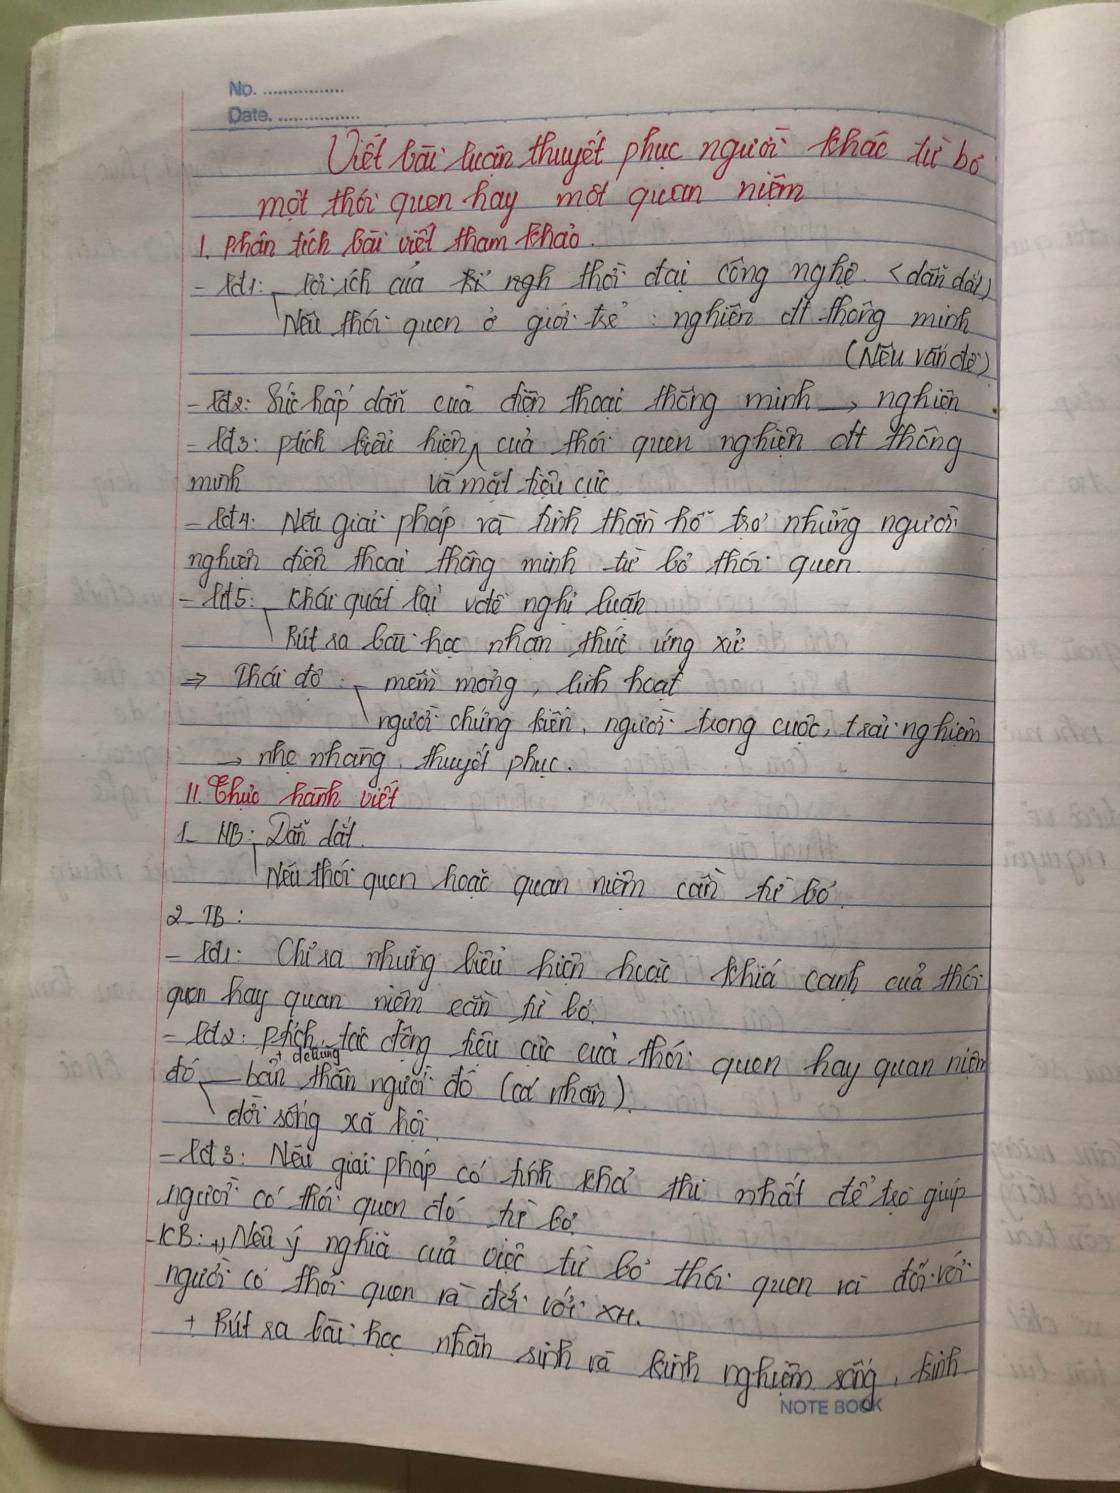 No. ................
Date. ................
Viết bài luận thuyết phục người khác từ bỏ
một thói quen hay một quan niệm
I. Phân tích bài viết tham khảo.
- Lđ1: lợi ích của thời đại công nghệ <dẫn dắt)
Nêu thói quen ở giới trẻ : nghiện đt thông minh
(Nêu vấn đề)
- Lđ2: Sức hấp dẫn của điện thoại thông minh → nghiện
- Lđ3: ptích biểu hiện ^ của thói quen nghiện đt thông
minh và mặt tiêu cực
- Lđ4: Nêu giải pháp và tinh thần hỗ trợ những người
nghiện điện thoại thông minh từ bỏ thói quen.
- Lđ5: Khái quát lại vđề nghị luận
Rút ra bài học nhận thức ứng xử
⇒ Thái độ : mềm mỏng, linh hoạt
người chứng kiến, người trong cuộc, trải nghiệm
→ nhẹ nhàng, thuyết phục.
II. Thực hành viết
1_ MB: Dẫn dắt.
Nêu thói quen hoặc quan niệm cần từ bỏ.
2_ TB :
- Lđ1: Chỉ ra những biểu hiện hoặc khía cạnh của thói
quen hay quan niệm cần từ bỏ.
- Lđ2: ptích tác động tiêu cực của thói quen hay quan niệm
đó bản thân người đó (cá nhân).
đời sống xã hội.
- Lđ3: Nêu giải pháp có tính khả thi nhất để trợ giúp
người có thói quen đó từ bỏ.
- KB: +, Nêu ý nghĩa của việc từ bỏ thói quen và đối với
người có thói quen và đối với XH.
+ Rút ra bài học nhân sinh và kinh nghiệm sống, kinh
NOTE BOOK